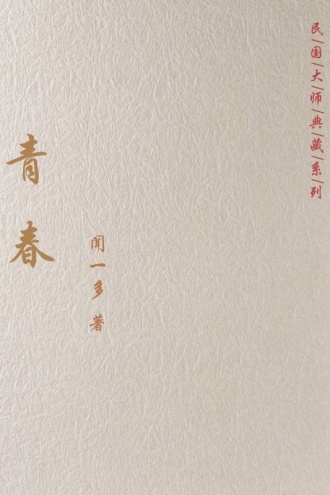 民国大师典藏系列
青春
闻一多 著